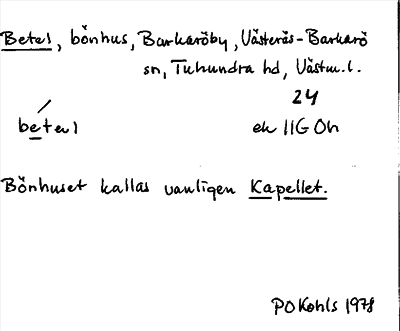 Betel, bönhus, Barkaröby, Västerås-Barkarö
sn, Tuhundra hd, Västm.l.
24
betel ek 11G 0h
Bönhuset kallas vanligen Kapellet.
PO Kohls 1978